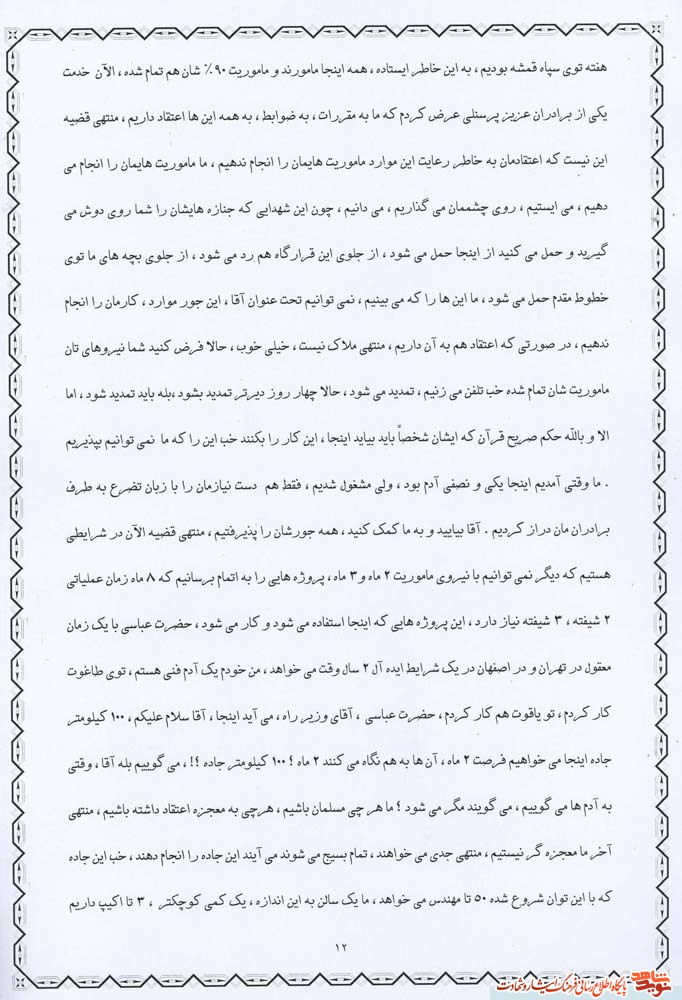 هفته توی سپاه قمشه بودیم ، به این خاطر ایستاده ، همه اینجا مامورند و ماموریت ۹۰٪ شان هم تمام شده ، الآن خدمت
یکی از برادران عزیز پرسنلی عرض کردم که ما به مقررات ، به ضوابط ، به همه این ها اعتقاد داریم ، منتهی قضیه
این نیست که اعتقادمان به خاطر رعایت این موارد ماموریت هایمان را انجام ندهیم ، ما ماموریت هایمان را انجام می
دهیم ، می ایستیم ، روی چشممان می گذاریم ، می دانیم ، چون این شهدایی که جنازه هایشان را شما روی دوش می
گیرید و حمل می کنید از اینجا حمل می شود ، از جلوی این قرارگاه هم رد می شود ، از جلوی بچه های ما توی
خطوط مقدم حمل می شود ، ما این ها را که می بینیم ، نمی توانیم تحت عنوان آقا ، این جور موارد ، کارمان را انجام
ندهیم ، در صورتی که اعتقاد هم به آن داریم ، منتهی ملاک نیست ، خیلی خوب ، حالا فرض کنید شما نیروهای تان
ماموریت شان تمام شده خب تلفن می زنیم ، تمدید می شود ، حالا چهار روز دیرتر تمدید بشود ،بله باید تمدید شود ، اما
الا و باللّه حکم صریح قرآن که ایشان شخصاً باید بیاید اینجا ، این کار را بکنند خب این را که ما نمی توانیم بپذیریم
. ما وقتی آمدیم اینجا یکی و نصفی آدم بود ، ولی مشغول شدیم ، فقط هم دست نیازمان را با زبان تضرع به طرف
برادران مان دراز کردیم . آقا بیایید و به ما کمک کنید ، همه جورشان را پذیرفتیم ، منتهی قضیه الآن در شرایطی
هستیم که دیگر نمی توانیم با نیروی ماموریت ۲ ماه و ۳ ماه ، پروژه هایی را به اتمام برسانیم که ۸ ماه زمان عملیاتی
۲ شیفته ، ۳ شیفته نیاز دارد ، این پروژه هایی که اینجا استفاده می شود و کار می شود ، حضرت عباسی با یک زمان
معقول در تهران و در اصفهان در یک شرایط ایده آل ۲ سال وقت می خواهد ، من خودم یک آدم فنی هستم ، توی طاغوت
کار کردم ، تو یاقوت هم کار کردم ، حضرت عباسی ، آقای وزیر راه ، می آید اینجا ، آقا سلام علیکم ، ۱۰۰ کیلومتر
جاده اینجا می خواهیم فرصت ۲ ماه ، آن ها به هم نگاه می کنند ۲ ماه ؟ ۱۰۰ کیلومتر جاده ؟! ، می گوییم بله آقا ، وقتی
به آدم ها می گوییم ، می گویند مگر می شود ؟ ما هر چی مسلمان باشیم ، هرچی به معجزه اعتقاد داشته باشیم ، منتهی
آخر ما معجزه گر نیستیم ، منتهی جدی می خواهند ، تمام بسیج می شوند می آیند این جاده را انجام دهند ، خب این جاده
که با این توان شروع شده ۵۰ تا مهندس می خواهد ، ما یک سالن به این اندازه ، یک کمی کوچکتر ، ۳ تا اکیپ داریم
۱۲
نوید شاهد
پایگاه اطلاع رسانی فرهنگ ایثار و شهادت